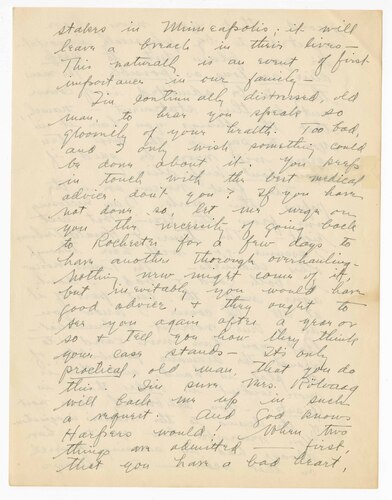 staters in Minneapolis; it will
leave a breach in their lives—
This naturally is an event of first
importance in our family—
I'm continually distressed, old
man, to hear you speak so
gloomily of your health. Too bad,
and I only wish something could
be done about it. You keep
in touch with the best medical
advice, don't you? If you have
not done so, let me urge on
you the necessity of going back
to Rochester for a few days to
have another thorough overhauling—
Nothing new might come of it,
but inevitably you would have
good advice, & they ought to
see you again after a year or
so & tell you how they think
your case stands— It's only
practical, old man, that you do
this. I'm sure Mrs. Rölvaag
will back me up in such
a request. And God knows
Harpers would! When two
things are admitted first,
that you have a bad heart,